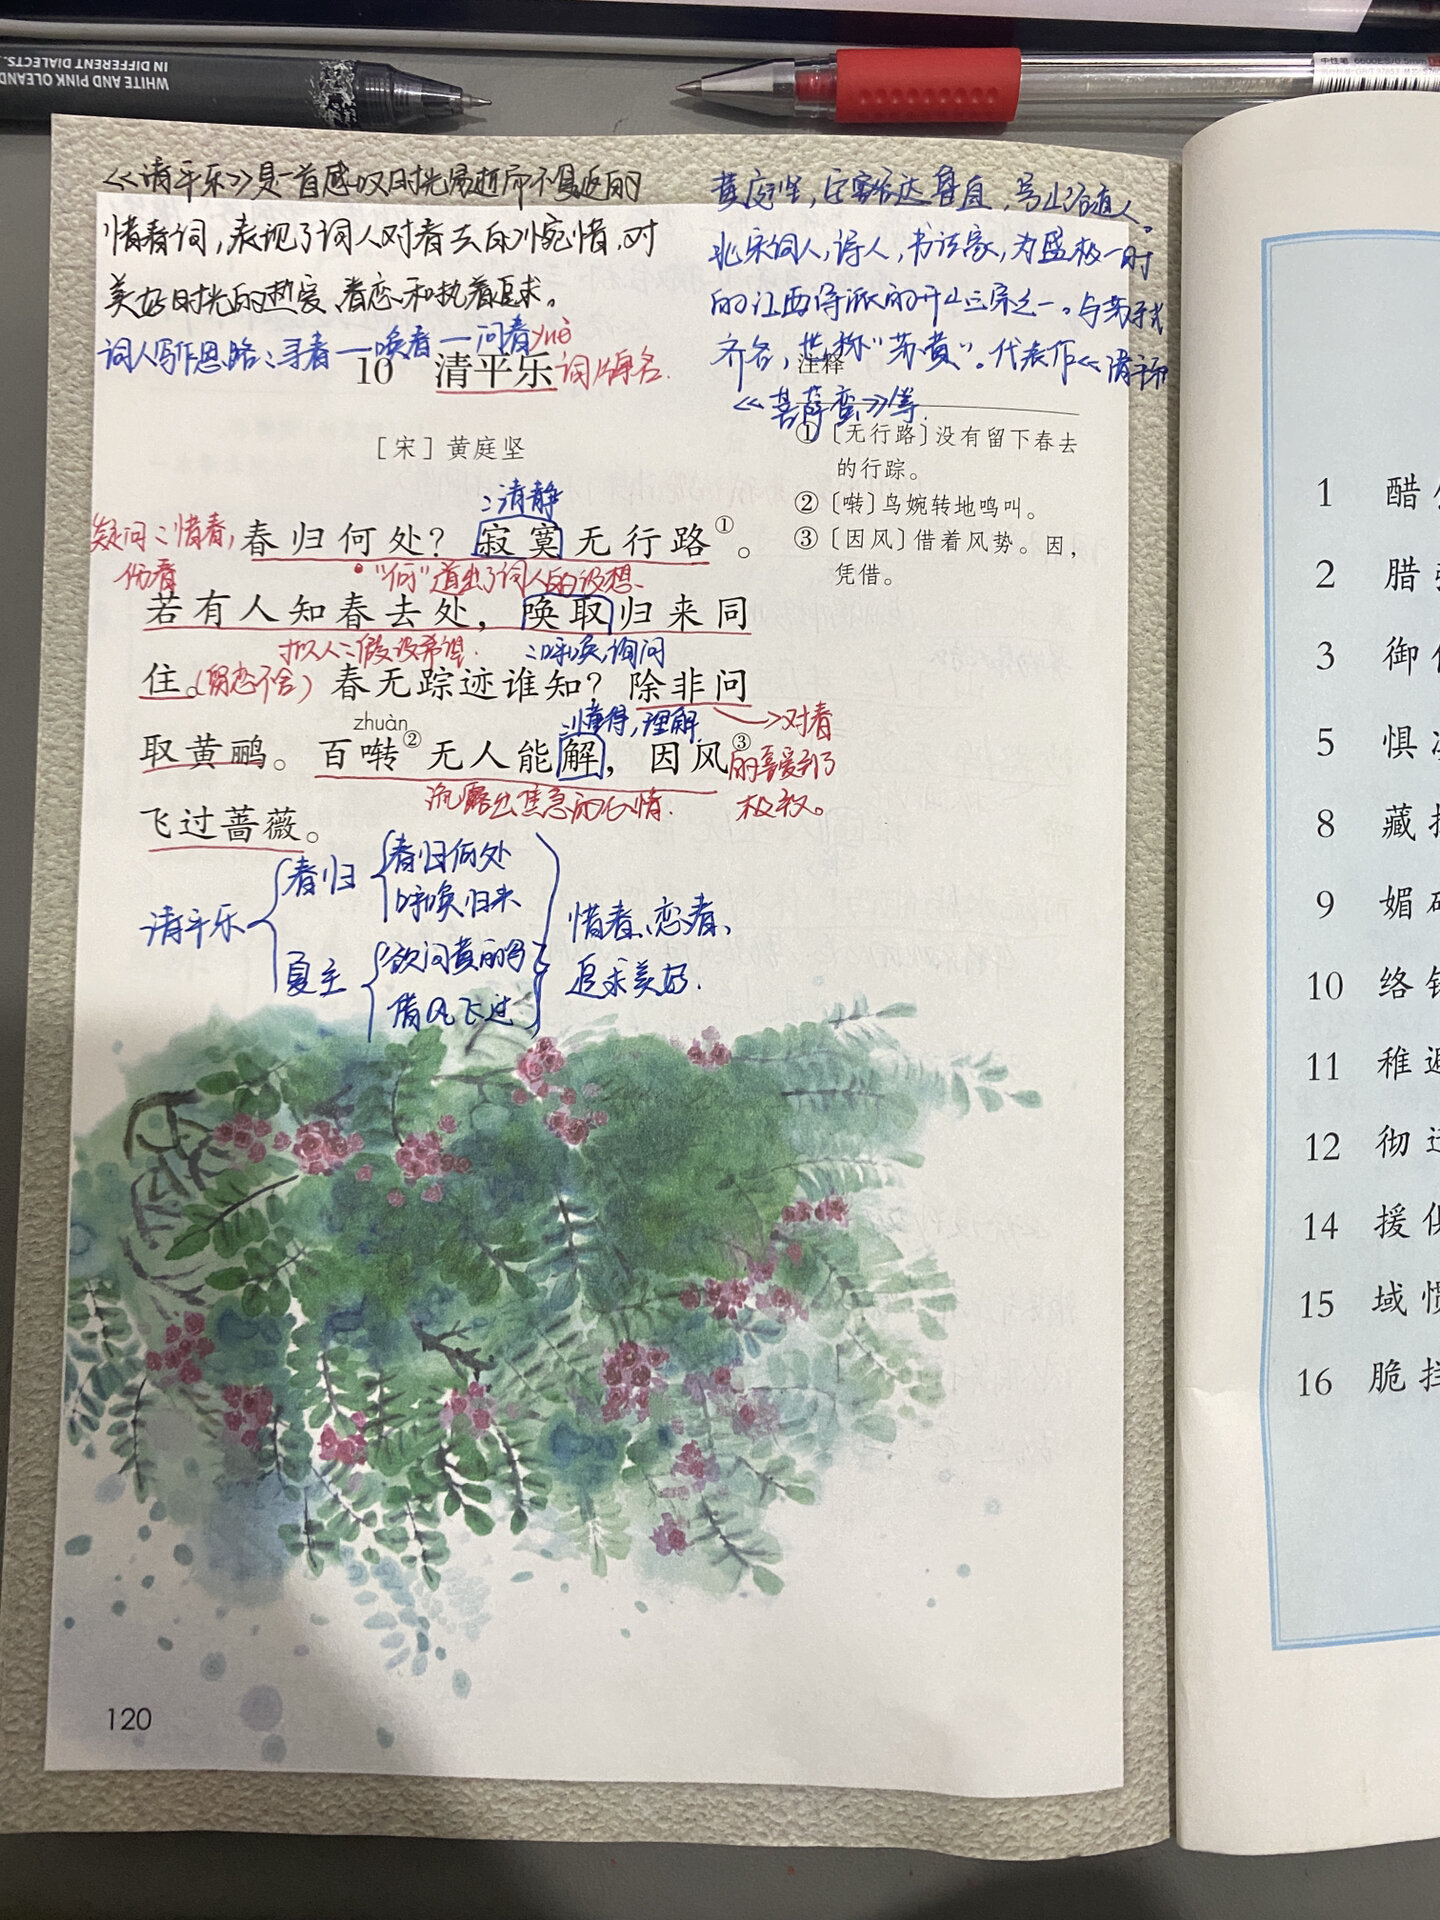 WHITE AND PINK OLEAND
IN DIFFERENT DIALECTS.
中性笔 6600ES/0.5mm
《清平乐》是一首感叹时光易逝而不复返的
惜春词，表现了词人对春去的惋惜，对
美好时光的热爱、眷恋和执着追求。
词人写作思路：寻春—唤春—问春
黄庭坚，字鲁直，号山谷道人。
北宋词人，诗人，书法家，为盛极一时
的江西诗派的开山之宗之一。与苏轼
齐名，世称“苏黄”。代表作《清平乐
《菩萨蛮》等.
yuè
10 清平乐 词牌名.
［宋］黄庭坚
：清静
疑问：惜春，
伤春
春归何处？寂寞无行路①。
“何”道出了词人的设想.
若有人知春去处，唤取归来同
拟人：假设希望.
：呼唤,询问
住。(留恋不舍) 春无踪迹谁知？除非问
zhuàn
：懂得,理解.
取黄鹂。百啭②无人能解，因风③
→对春
的喜爱到了
极致。
流露出焦急的心情.
飞过蔷薇。
注释
①〔无行路〕没有留下春去
的行踪。
②〔啭〕鸟婉转地鸣叫。
③〔因风〕借着风势。因，
凭借。
清平乐
春归
春归何处
呼唤归来
夏至
欲问黄鹂
借风飞过
惜春、恋春、
追求美好.
120
1 醋
2 腊
3 御
5 惧
8 藏
9 媚
10 络
11 稚
12 彻
14 援
15 域
16 脆